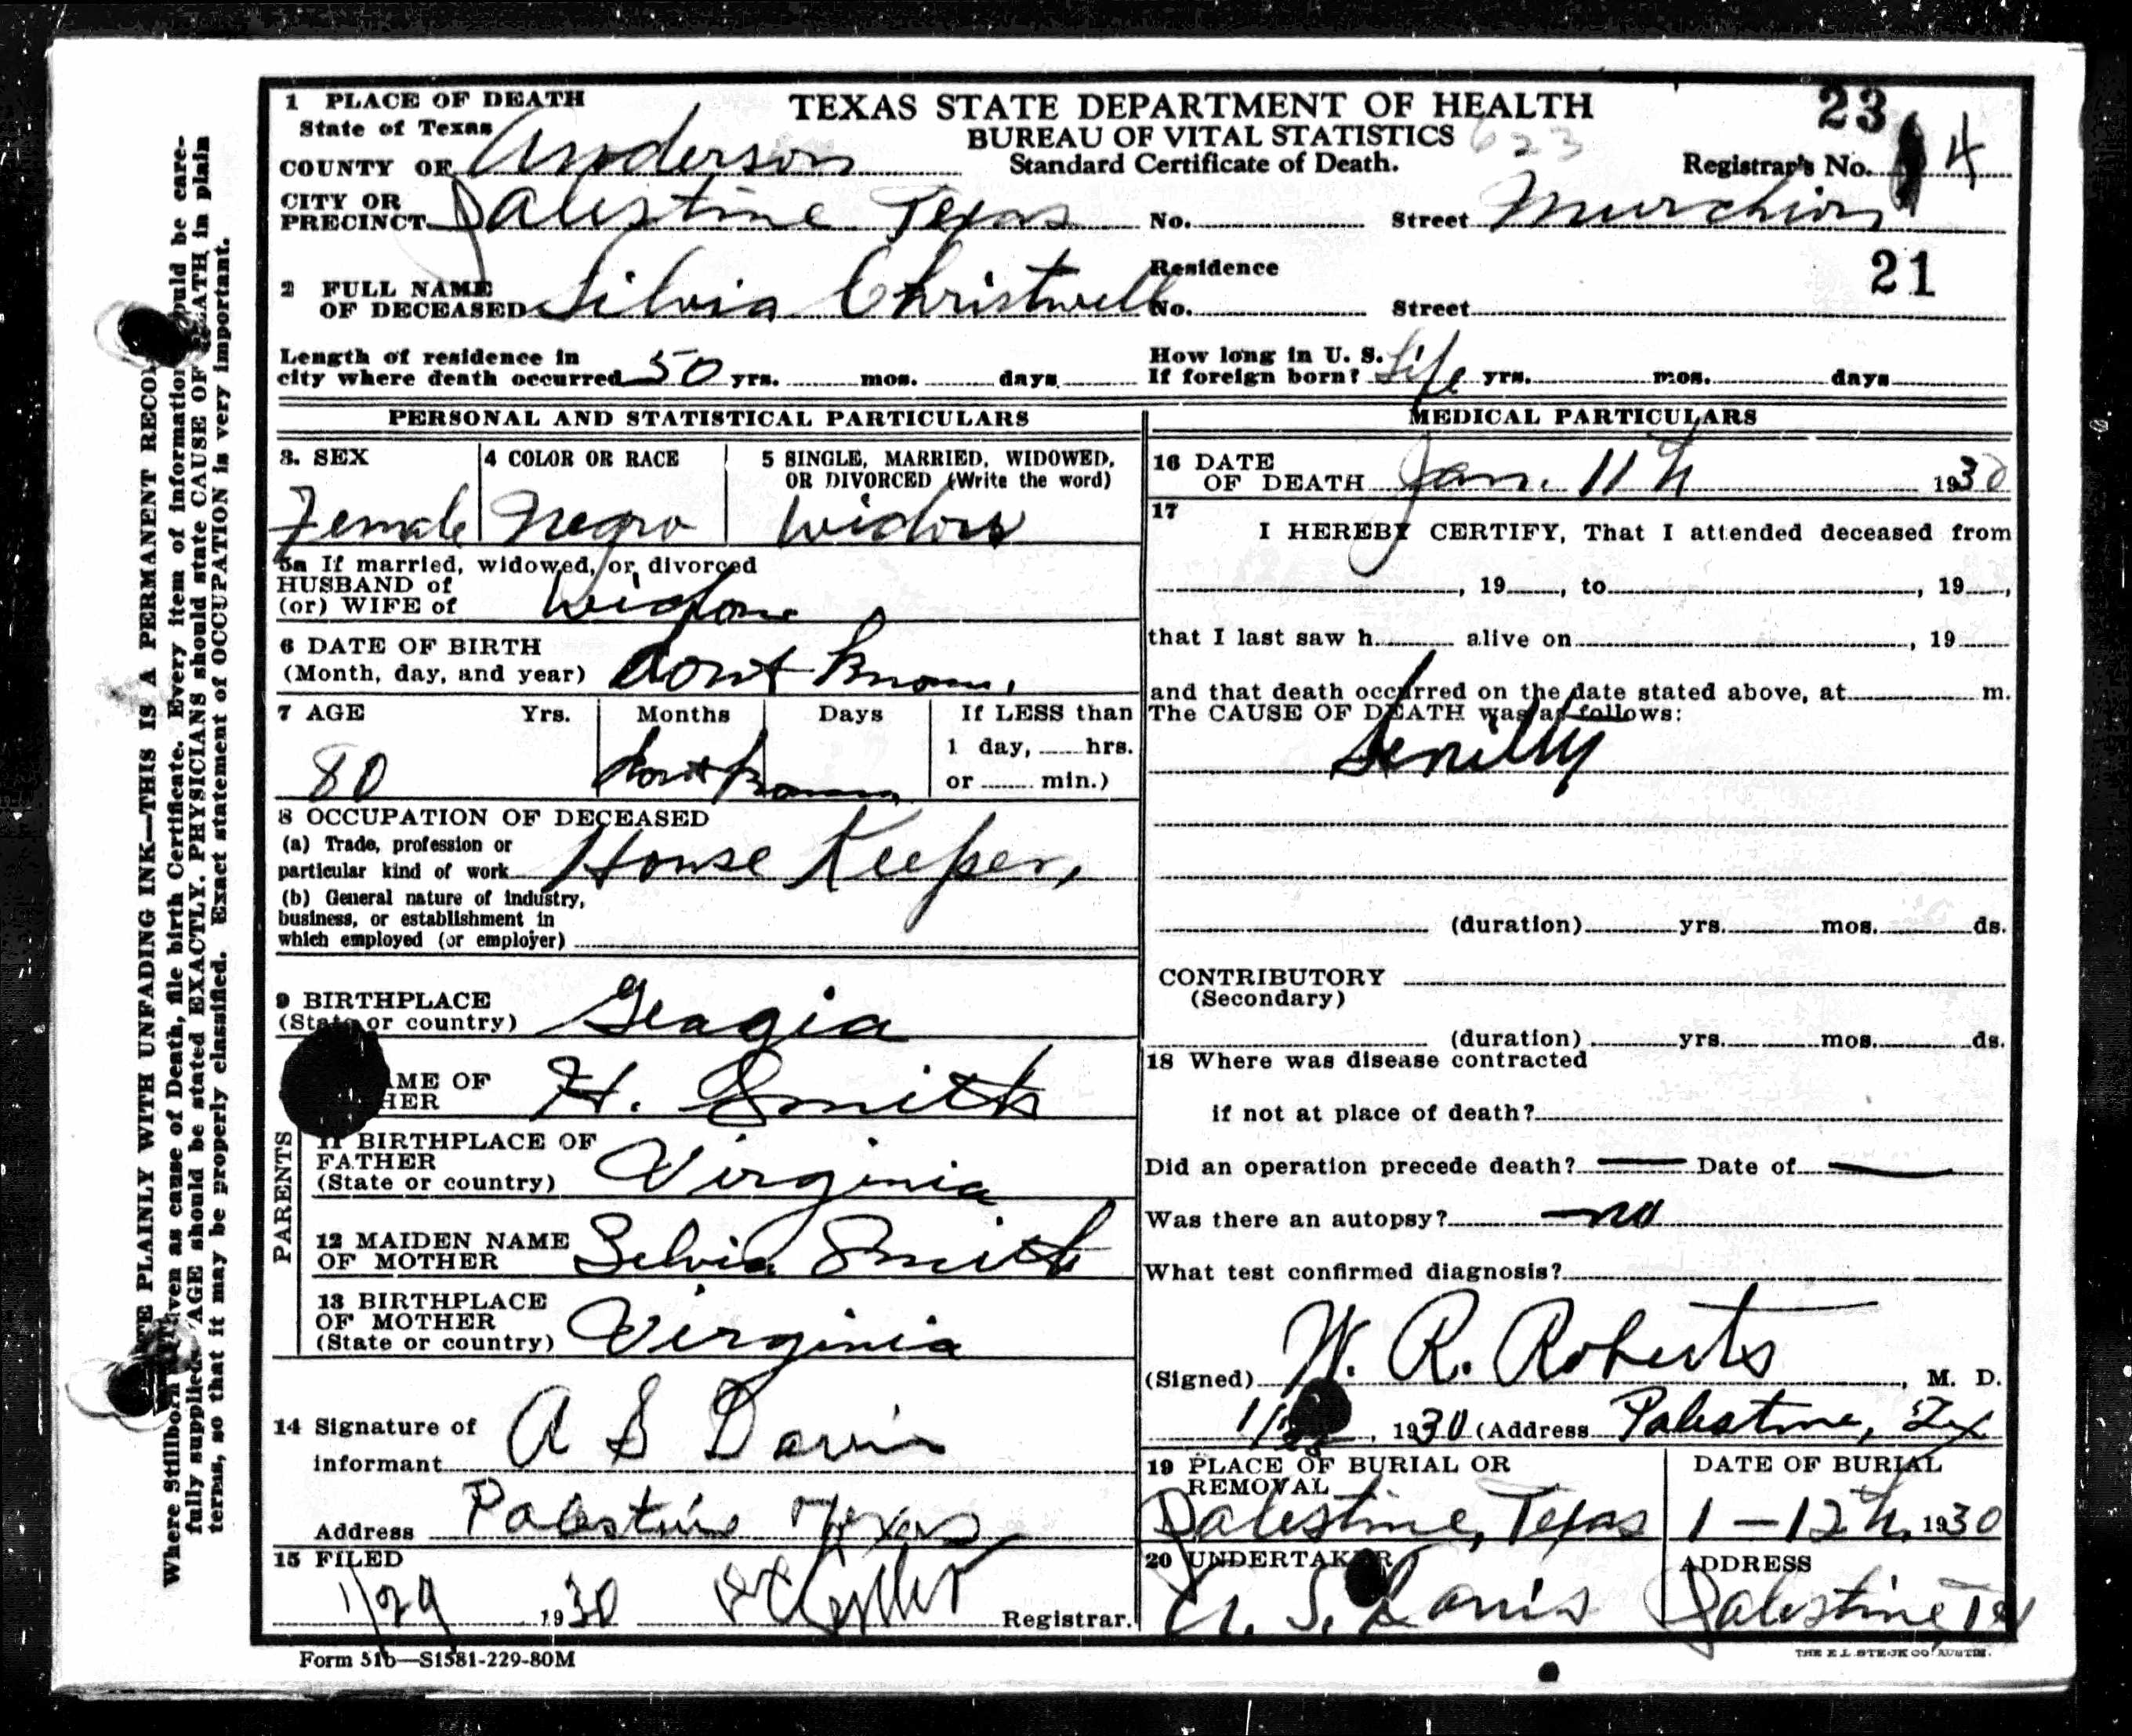 1 PLACE OF DEATH
State of Texas
TEXAS STATE DEPARTMENT OF HEALTH
BUREAU OF VITAL STATISTICS
Standard Certificate of Death.
23
623
COUNTY OF Anderson
Registrar's No. 14
CITY OR PRECINCT Palestine Texas No. Street Murchison
21
2 FULL NAME OF DECEASED Silvia Christwell
Residence No. Street
Length of residence in city where death occurred 50 yrs. mos. days
How long in U. S. If foreign born? Life yrs. mos. days
PERSONAL AND STATISTICAL PARTICULARS
3. SEX Female
4 COLOR OR RACE Negro
5 SINGLE, MARRIED, WIDOWED, OR DIVORCED (Write the word) Widow
5a If married, widowed, or divorced
HUSBAND of
(or) WIFE of Widow
6 DATE OF BIRTH
(Month, day, and year) dont know.
7 AGE Yrs. Months Days If LESS than
1 day, hrs.
or min.)
80 dont know
8 OCCUPATION OF DECEASED
(a) Trade, profession or
particular kind of work House Keeper,
(b) General nature of industry,
business, or establishment in
which employed (or employer)
9 BIRTHPLACE
(State or country) Geogia
AME OF
HER H. Smith
PARENTS
11 BIRTHPLACE OF
FATHER
(State or country) Virginia
12 MAIDEN NAME
OF MOTHER Selvia Smith
13 BIRTHPLACE
OF MOTHER
(State or country) Virginia
14 Signature of
informant A S Davis
Address Palestine Texas
15 FILED
1/29 1930 Registrar.
MEDICAL PARTICULARS
16 DATE
OF DEATH Jan. 11th 1930
17
I HEREBY CERTIFY, That I attended deceased from
, 19 , to , 19 ,
that I last saw h alive on , 19
and that death occurred on the date stated above, at m.
The CAUSE OF DEATH was as follows:
Senility
(duration) yrs. mos. ds.
CONTRIBUTORY
(Secondary)
(duration) yrs. mos. ds.
18 Where was disease contracted
if not at place of death?
Did an operation precede death? — Date of —
Was there an autopsy? no
What test confirmed diagnosis?
(Signed) W. R. Roberts , M. D.
1/ , 1930 (Address Palestine, Tex
19 PLACE OF BURIAL OR
REMOVAL
Palestine, Texas
DATE OF BURIAL
1-12th, 1930
20 UNDERTAKER
A. S. Davis
ADDRESS
Palestine, Tex
Form 51b—S1581-229-80M
THE E.L. STECK CO. AUSTIN.
TE PLAINLY WITH UNFADING INK—THIS IS A PERMANENT RECOR
Where Stillborn iven as cause of Death, file birth Certificate. Every item of information should be care-
fully supplied. AGE should be stated EXACTLY. PHYSICIANS should state CAUSE OF DEATH in plain
terms, so that it may be properly classified. Exact statement of OCCUPATION is very important.